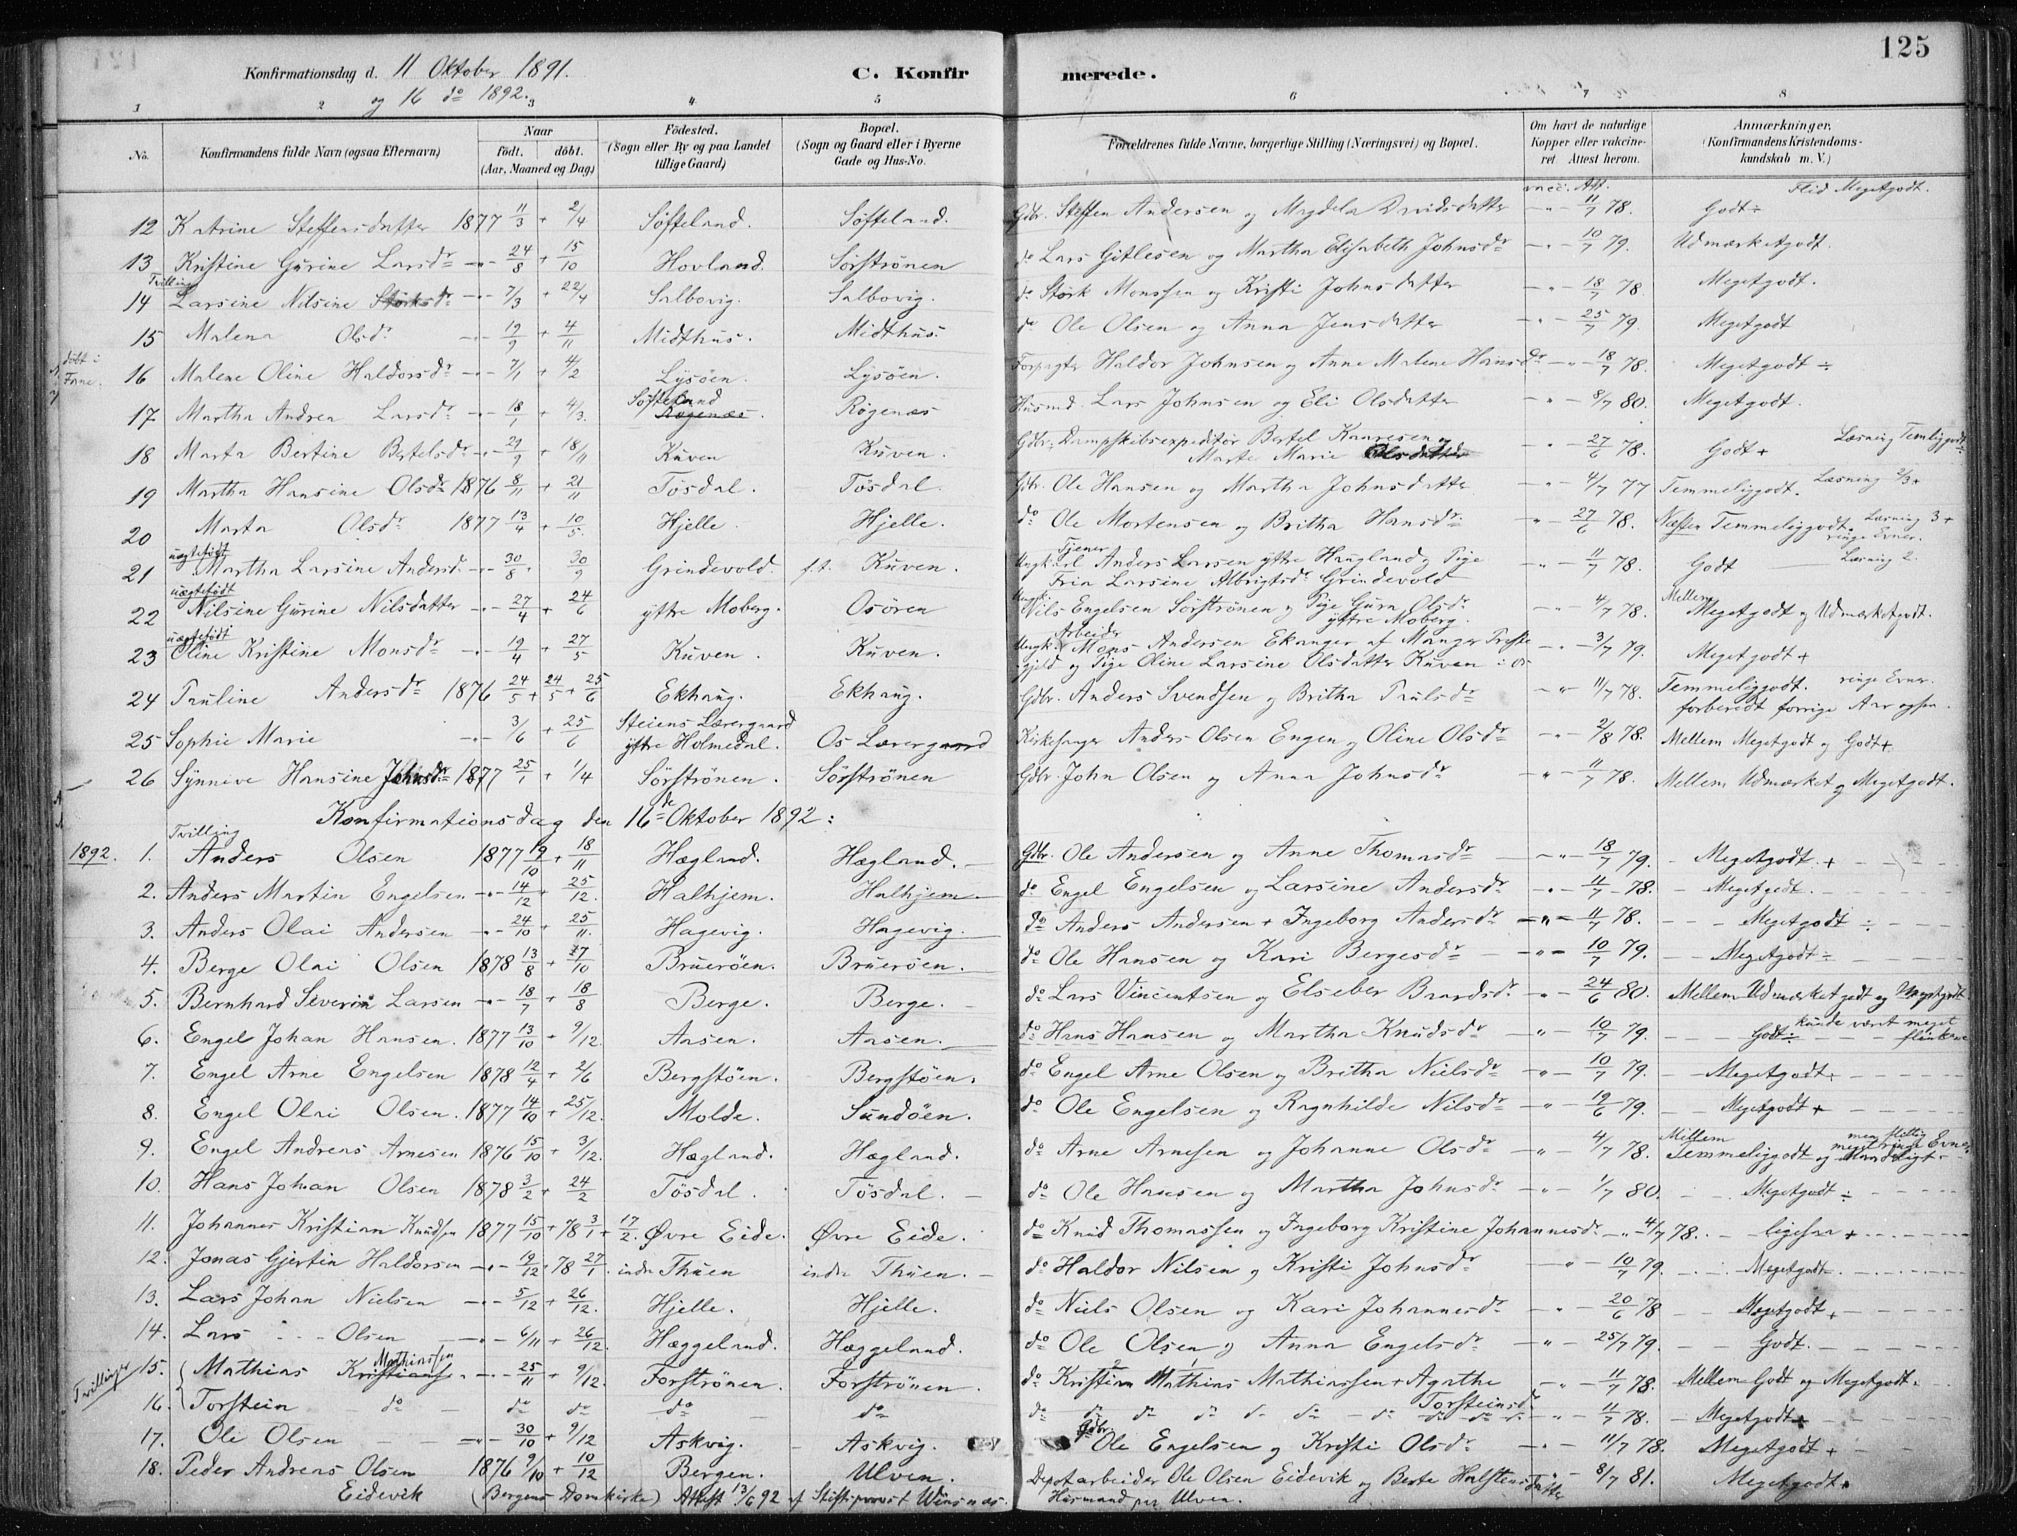 125
Konfirmationsdag d. 11 Oktober 1891. C. Konfirmerede.
og 16 do 1892.
1 2 3 4 5 6 7 8
No. Konfirmandens fulde Navn (ogsaa Efternavn) Naar födt. döbt. (Aar, Maaned og Dag) Födested. (Sogn eller By og paa Landet tillige Gaard) Bopæl. (Sogn og Gaard eller i Byerne Gade og Hus-No. Forældrenes fulde Navne, borgerlige Stilling (Næringsvei) og Bopæl. Om havt de naturlige Kopper eller vakcineret Attest herom. Anmærkninger. (Konfirmandens Kristendomskundskab m. V.)
vacc. Att. Flid Megetgodt.
12 Katrine Steffensdatter 1877 11/3 + 2/4 Søfteland. Søfteland. Gbr. Steffen Andersen og Magdela Davidsdatter -"- 11/7 78. Godt÷
13 Kristine Gurine Larsdr -"- 24/8 + 15/10 Hovland. Sörströnen do Lars Gitlesen og Martha Elisabeth Johnsdr -"- 10/7 79. Udmærketgodt.
Tvilling
14 Larsine Nilsine Størksdr -"- 7/3 + 22/4 Salbovig. Salbovig. do Størk Monssen og Kristi Johnsdatter -"- 18/7 78. Megetgodt.
15 Malena Olsdr -"- 19/9 + 4/11 Midthus. Midthus. do Ole Olsen og Anna Jensdatter -"- 25/7 79. Megetgodt
döbt i Fane. 16 Malene Oline Haldorsdr -"- 7/1 + 4/2 Lysøen. Lysøen. Forpagter Haldor Johnsen og Anne Malene Hansdr -"- 18/7 78. Megetgodt ÷
17 Martha Andrea Larsdr -"- 18/1 + 4/3. Søfteland Røgenæs. Røgenæs Husmd Lars Johnsen og Eli Olsdatter -"- 8/7 80. Megetgodt.
18 Marta Bertine Bertelsdr -"- 29/9 + 18/11 Kuven Kuven. Gbr. Dampskibsexpeditör Bertel Knaresen og Marte Marie Olsdatter -"- 27/6 78. Godt + Læsning Temligodt÷
19 Martha Hansine Olsdr 1876 8/11 + 21/11 Tøsdal. Tøsdal. Gbr. Ole Hansen og Martha Johnsdatter -"- 4/7 77 Temmeliggodt. Læsning 2/3+
20 Marta Olsdr 1877 13/4 + 10/5. Hjelle. Hjelle. do Ole Mortensen og Britha Hansdr -"- 27/6 78. Næsten Temmeliggodt. Læsning 3+ ringe Evner.
uægtefødt
21 Martha Larsine Andersd. -"- 30/8 30/9 Grindevold. f.t. Kuven. Ungkarl Tjener Anders Larsen ytre Haugland og Pige Fria Larsine Albrigtsdr Grindevold -"- 11/7 78. Godt Læsning 2.
uægtefødt
22 Nilsine Gurine Nilsdatter -"- 27/4 + 24/6 ytre Moberg. Osören Ungk. Nils Engelsen Sörströnen og Pige Gura Olsdr ytre Moberg. -"- 4/7 78. Mellem Megetgodt og Udmærketgodt.
uægtefødt
23 Oline Kristine Monsdr -"- 19/4 + 27/5 Kuven. Kuven. Ungk. Arbeider Mons Andersen Ekanger af Manger Præstegjeld og Pige Oline Larsine Olsdatter Kuven i Os -"- 3/7 79. Megetgodt+
24 Pauline Andersdr 1876 24/5 + 24/5 + 25/6 Ekhaug. Ekhaug. Gbr. Anders Svendsen og Britha Paulsdr -"- 11/7 78. Temmeliggodt. ringe Evner. forberedt forrige Aar ogsaa.
25 Sophie Marie -"- 3/6 + 25/6 Steiens Lærergaard ytre Holmedal. Os Lærergaard Kirkesanger Anders Olsen Engen og Oline Olsdr -"- 2/8 78. Mellem Megetgodt og Godt+
26 Synneve Hansine Johnsdr 1877 25/1 + 1/4 Sörströnen. Sörströnen Gbr. John Olsen og Anna Johnsdr -"- 11/7 78. Mellem Udmærket og Megetgodt.
Konfirmationsdag den 16de Oktober 1892:
Tvilling
1892. 1. Anders Olsen 1877 19/10 + 18/11 Hægland. Hægland. Gbr. Ole Andersen og Anne Thomasdr -"- 18/7 79. Megetgodt +
2. Anders Martin Engelsen -"- 14/12 + 25/12. Halhjem. Halhjem. do Engel Engelsen og Larsine Andersdr -"- 11/7 78. Megetgodt.
3. Anders Olai Andersen -"- 24/10 + 25/11. Hagevig. Hagevig. do Anders Andersen + Ingeborg Andersdr -"- 11/7 78. Megetgodt ÷
4. Berge Olai Olsen 1878 13/8 + 17/10 Bruerøen. Bruerøen. do Ole Hansen og Kari Bergesdr -"- 10/7 79. Megetgodt÷
5. Bernhard Severin Larsen -"- 18/7 + 18/8 Berge. Berge. do Lars Vincentsen og Elseber Baardsdr -"- 24/6 80. Mellem Udmærketgodt og Megetgodt
6. Engel Johan Hansen. 1877 13/10 + 9/12. Aasen. Aasen. do Hans Hansen og Martha Knudsdr -"- 10/7 79. Godt÷ kunde været meget flinkere
7. Engel Arne Engelsen 1878 12/4 + 2/6 Bergstøen. Bergstøen. do Engel Arne Olsen og Britha Nielsdr -"- 10/7 79. Megetgodt.
8. Engel Olai Olsen. 1877 14/10 + 25/12. Molde. Sundøen. do Ole Engelsen og Ragnhilde Nilsdr -"- 19/6 79. Megetgodt+
9. Engel Andreas Arnesen 1876 15/10 + 3/12. Hægland. Hægland. do Arne Arnesen og Johanne Olsdr -"- 4/7 78. Mellem Temmeliggodt og Maadeligt men flittig meget ringe Evner
10. Hans Johan Olsen 1878 3/2 + 24/2 Tøsdal. Tøsdal. do Ole Hansen og Martha Johnsdr -"- 1/7 80. Megetgodt÷
11. Johannes Kristian Knudsen 1877 15/10 + 78 3/1 + 17/2. Øvre Eide. Øvre Eide. do Knud Thomassen og Ingeborg Kristine Johannesdr -"- 4/7 78. ligesaa +
12. Jonas Gjertin Haldorsen -"- 19/12 + 78 27/1. indre Thuen indre Thuen. do Haldor Nilsen og Kristi Johnsdr -"- 10/7 79. Megetgodt.
13. Lars Johan Nielsen -"- 5/12 + 26/12. Hjelle. Hjelle. do Niels Olsen og Kari Johannesdr -"- 20/6 78 Megetgodt+
14. Lars Olsen -"- 6/11 + 26/12. Hæggeland. Hæggeland. do Ole Olsen og Anna Engelsdr -"- 25/7 79. Godt.
Tvillinger 15. Mathias Kristians. Mathiassen -"- 25/11 + 9/12. Forströnen. Forströnen. do Kristian Mathias Mathiassen + Agathe Torsteinsdr -"- 11/7 78. Mellem Godt og Megetgodt.
16. Torstein do do do do do do do do do do do do -"- 11/7 78. Megetgodt+
17. Ole Olsen -"- 30/10 + 9/12 Askvig. Askvig. Gdbr. Ole Engelsen og Kristi Olsdr -"- 11/7 78. Megetgodt +
18. Peder Andreas Olsen Eidevik 1876 9/10 + 10/12 Bergen. Ulven. Depotarbeider Ole Olsen Eidevik og Berte Halstensdatter -"- 8/7 81. Megetgodt.
(Bergens Domkirke) Attest 13/6 92 af Stiftsprovst Winsnæs. Husmand paa Ulven.